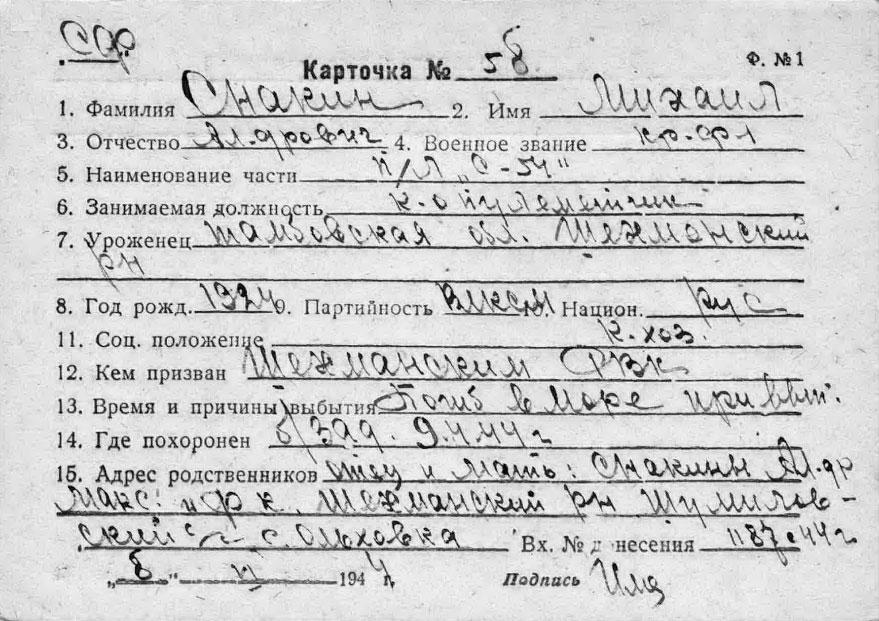 Карточка № 58 Ф. №1
1. Фамилия Снакин 2. Имя Михаил
3. Отчество Ал-дрович 4. Военное звание кр-фл
5. Наименование части п/л „С-54"
6. Занимаемая должность к-о пулеметчик
7. Уроженец Тамбовская обл. Шехманский
рн
8. Год рожд. 1924 9. Партийность ВЛКСМ 10. Национ. рус
11. Соц. положение к.хоз.
12. Кем призван Шехманским РВК
13. Время и причины выбытия Погиб в море при вып.
14. Где похоронен б/зад. 9.4.44 г
15. Адрес родственников отец и мать: Снакины Ал-др
Макс. и Шехманский рн Шумилов-
ский с. Ольховка Вх. № донесения 44 г
1944 г. Подпись